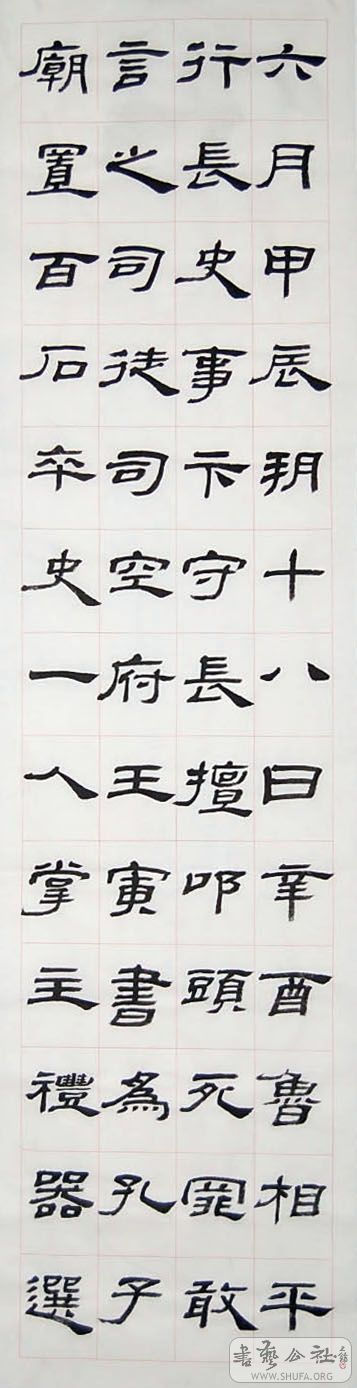 六月甲辰朔十八日辛酉魯相平
行長史事卞守長擅叩頭死罪敢
言之司徒司空府壬寅書為孔子
廟置百石卒史一人掌主禮器選
書藝公社
www.SHUFA.ORG